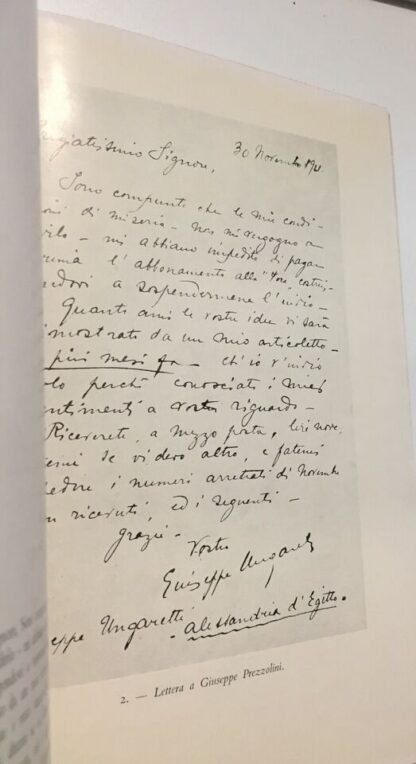 30 Novembre 1911.
Pregiatissimo Signore,
Sono compunto che le mie condi-
oni di miseria - non mi vergogno a
irlo - mi abbiano impedito di pagar
prima l'abbonamento alla "Voce, costrin-
endovi a sospendermene l'invio -
Quanto ami le vostre idee vi sarà
imostrato da un mio articoletto -
più mesi fa - ch'io v'invio
olo perchè conosciate i miei
entimenti a vostro riguardo -
Riceverete, a mezzo posta, lire nove.
temi se vi devo altro, e fatemi
edere i numeri arretrati di Novembre
n ricevuti, ed i seguenti -
Grazie -
Vostro
Giuseppe Ungaretti
eppe Ungaretti
- Alessandria d'Egitto -
2. — Lettera a Giuseppe Prezzolini.